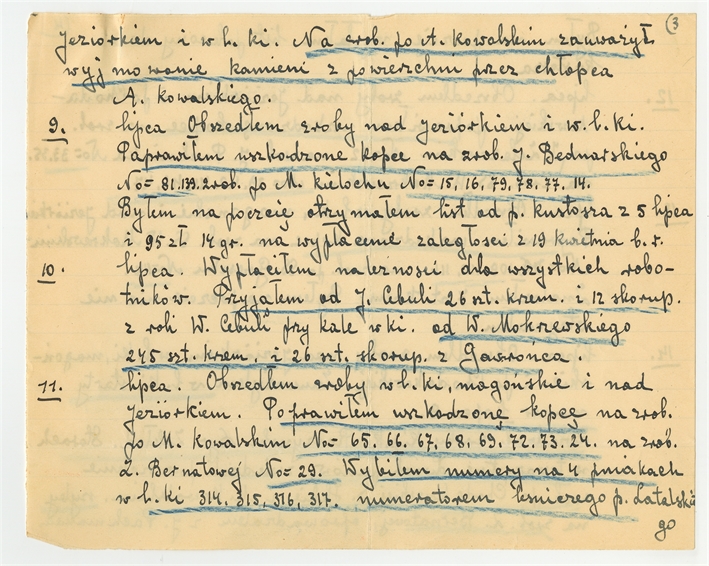 3
Jeziórkiem i w l. ki. Na zrob. po A. Kowalskim zauważył
wyjmowanie kamieni z powierzchni przez chłopca
A. Kowalskiego.
9. lipca Obszedłem zroby nad Jeziórkiem i w. l. ki.
Paprawiłem uszkodzone kopce na zrob. J. Bednarskiego
No= 81.139. zrob. po M. Kielochu No= 15, 16, 79, 78, 77. 14.
Byłem na poczcię otrzymałem list od p. Kurtosza z 5 lipca
i 95 zł 14 gr. na wypłacenie zaległości z 19 kwietnia b. r.
10. lipca Wypłaciłem należności dla wszystkich robo-
tników. Przyjąłem od J. Cebuli 26 szt. krzem. i 12 skorup.
z roli W. Cebuli przy kale w ki. od W. Mokrzewskiego
245 szt. krzem. i 26 szt. skorup. z Gawrońca.
11. lipca. Obszedłem zroby w l. ki, magońskie i nad
Jeziórkiem. Poprawiłem uszkodzonę kopcę na zrob.
po M. Kowalskim No= 65. 66. 67, 68, 69. 72. 73. 24. na zrob.
Z. Bernatowej No= 29. Wybiłem numery na 4 pniakach
w l. ki 314, 315, 316, 317. numeratorem leśniczego p. Latalskie
go